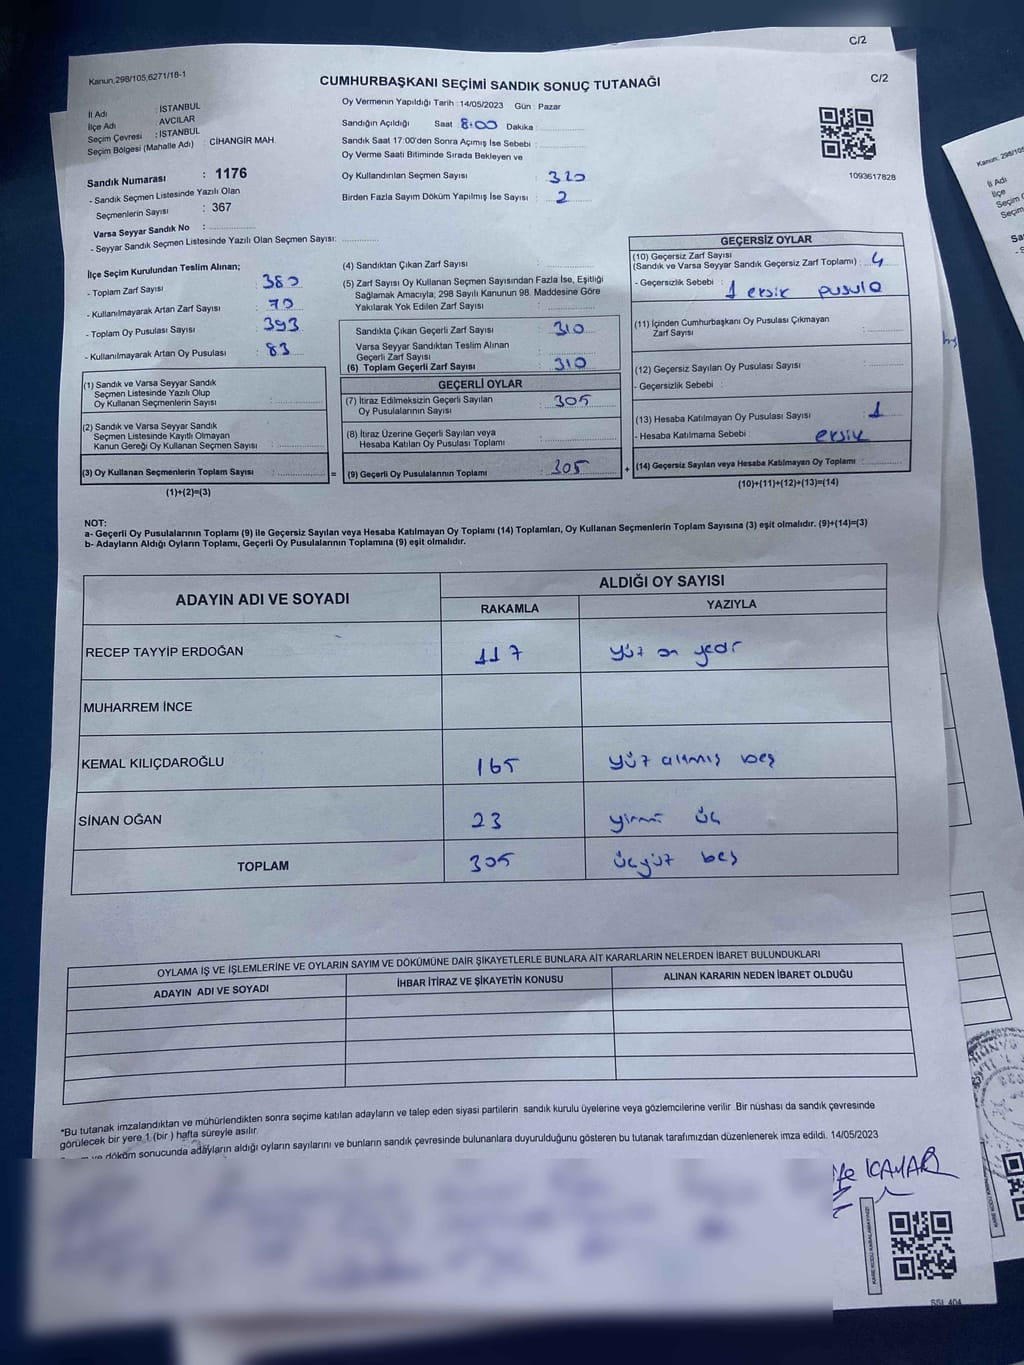 C/2
C/2
Kanun,298/105,6271/18-1
CUMHURBAŞKANI SEÇİMİ SANDIK SONUÇ TUTANAĞI
İl Adı : İSTANBUL
İlçe Adı : AVCILAR
Seçim Çevresi : İSTANBUL
Seçim Bölgesi (Mahalle Adı) : CİHANGİR MAH.
Sandık Numarası : 1176
- Sandık Seçmen Listesinde Yazılı Olan
Seçmenlerin Sayısı : 367
Varsa Seyyar Sandık No :
- Seyyar Sandık Seçmen Listesinde Yazılı Olan Seçmen Sayısı:
Oy Vermenin Yapıldığı Tarih : 14/05/2023 Gün : Pazar
Sandığın Açıldığı Saat 8:00 Dakika :
Sandık Saat 17:00'den Sonra Açımış İse Sebebi :
Oy Verme Saati Bitiminde Sırada Bekleyen ve
Oy Kullandırılan Seçmen Sayısı : 320
Birden Fazla Sayım Döküm Yapılmış İse Sayısı : 2
1093617828
İlçe Seçim Kurulundan Teslim Alınan;
- Toplam Zarf Sayısı : 380
- Kullanılmayarak Artan Zarf Sayısı : 70
- Toplam Oy Pusulası Sayısı : 393
- Kullanılmayarak Artan Oy Pusulası : 83
(1) Sandık ve Varsa Seyyar Sandık
Seçmen Listesinde Yazılı Olup
Oy Kullanan Seçmenlerin Sayısı :
(2) Sandık ve Varsa Seyyar Sandık
Seçmen Listesinde Kayıtlı Olmayan
Kanun Gereği Oy Kullanan Seçmen Sayısı :
(3) Oy Kullanan Seçmenlerin Toplam Sayısı : =
(1)+(2)=(3)
(4) Sandıktan Çıkan Zarf Sayısı :
(5) Zarf Sayısı Oy Kullanan Seçmen Sayısından Fazla İse, Eşitliği
Sağlamak Amacıyla, 298 Sayılı Kanunun 98. Maddesine Göre
Yakılarak Yok Edilen Zarf Sayısı :
Sandıkta Çıkan Geçerli Zarf Sayısı : 310
Varsa Seyyar Sandıktan Teslim Alınan
Geçerli Zarf Sayısı :
(6) Toplam Geçerli Zarf Sayısı : 310
GEÇERLİ OYLAR
(7) İtiraz Edilmeksizin Geçerli Sayılan
Oy Pusulalarının Sayısı : 305
(8) İtiraz Üzerine Geçerli Sayılan veya
Hesaba Katılan Oy Pusulası Toplamı :
(9) Geçerli Oy Pusulalarının Toplamı : 305 +
GEÇERSİZ OYLAR
(10) Geçersiz Zarf Sayısı
(Sandık ve Varsa Seyyar Sandık Geçersiz Zarf Toplamı) : 4
- Geçersizlik Sebebi : 1 eksik pusula
(11) İçinden Cumhurbaşkanı Oy Pusulası Çıkmayan
Zarf Sayısı :
(12) Geçersiz Sayılan Oy Pusulası Sayısı :
- Geçersizlik Sebebi :
(13) Hesaba Katılmayan Oy Pusulası Sayısı : 1
- Hesaba Katılmama Sebebi : eksik
(14) Geçersiz Sayılan veya Hesaba Katılmayan Oy Toplamı :
(10)+(11)+(12)+(13)=(14)
NOT:
a- Geçerli Oy Pusulalarının Toplamı (9) ile Geçersiz Sayılan veya Hesaba Katılmayan Oy Toplamı (14) Toplamları, Oy Kullanan Seçmenlerin Toplam Sayısına (3) eşit olmalıdır. (9)+(14)=(3)
b- Adayların Aldığı Oyların Toplamı, Geçerli Oy Pusulalarının Toplamına (9) eşit olmalıdır.
ADAYIN ADI VE SOYADI
ALDIĞI OY SAYISI
RAKAMLA YAZIYLA
RECEP TAYYİP ERDOĞAN 117 yüz on yedi
MUHARREM İNCE
KEMAL KILIÇDAROĞLU 165 yüz altmış beş
SİNAN OĞAN 23 yirmi üç
TOPLAM 305 üçyüz beş
OYLAMA İŞ VE İŞLEMLERİNE VE OYLARIN SAYIM VE DÖKÜMÜNE DAİR ŞİKAYETLERLE BUNLARA AİT KARARLARIN NELERDEN İBARET BULUNDUKLARI
ADAYIN ADI VE SOYADI İHBAR İTİRAZ VE ŞİKAYETİN KONUSU ALINAN KARARIN NEDEN İBARET OLDUĞU
*Bu tutanak imzalandıktan ve mühürlendikten sonra seçime katılan adayların ve talep eden siyasi partilerin sandık kurulu üyelerine veya gözlemcilerine verilir .Bir nüshası da sandık çevresinde
görülecek bir yere 1 (bir ) hafta süreyle asılır.
ve döküm sonucunda adayların aldığı oyların sayılarını ve bunların sandık çevresinde bulunanlara duyurulduğunu gösteren bu tutanak tarafımızdan düzenlenerek imza edildi. 14/05/2023
KAYAR
Kanun, 298/105
İl Adı
İlçe
Seçim